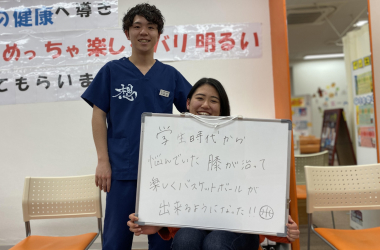 の健康へ導き
めっちゃ楽し
バリ明るい
てもらいま
想
学生時代から
悩んでいた 膝が治って
楽しくバスケットボールが
出来るようになった!!